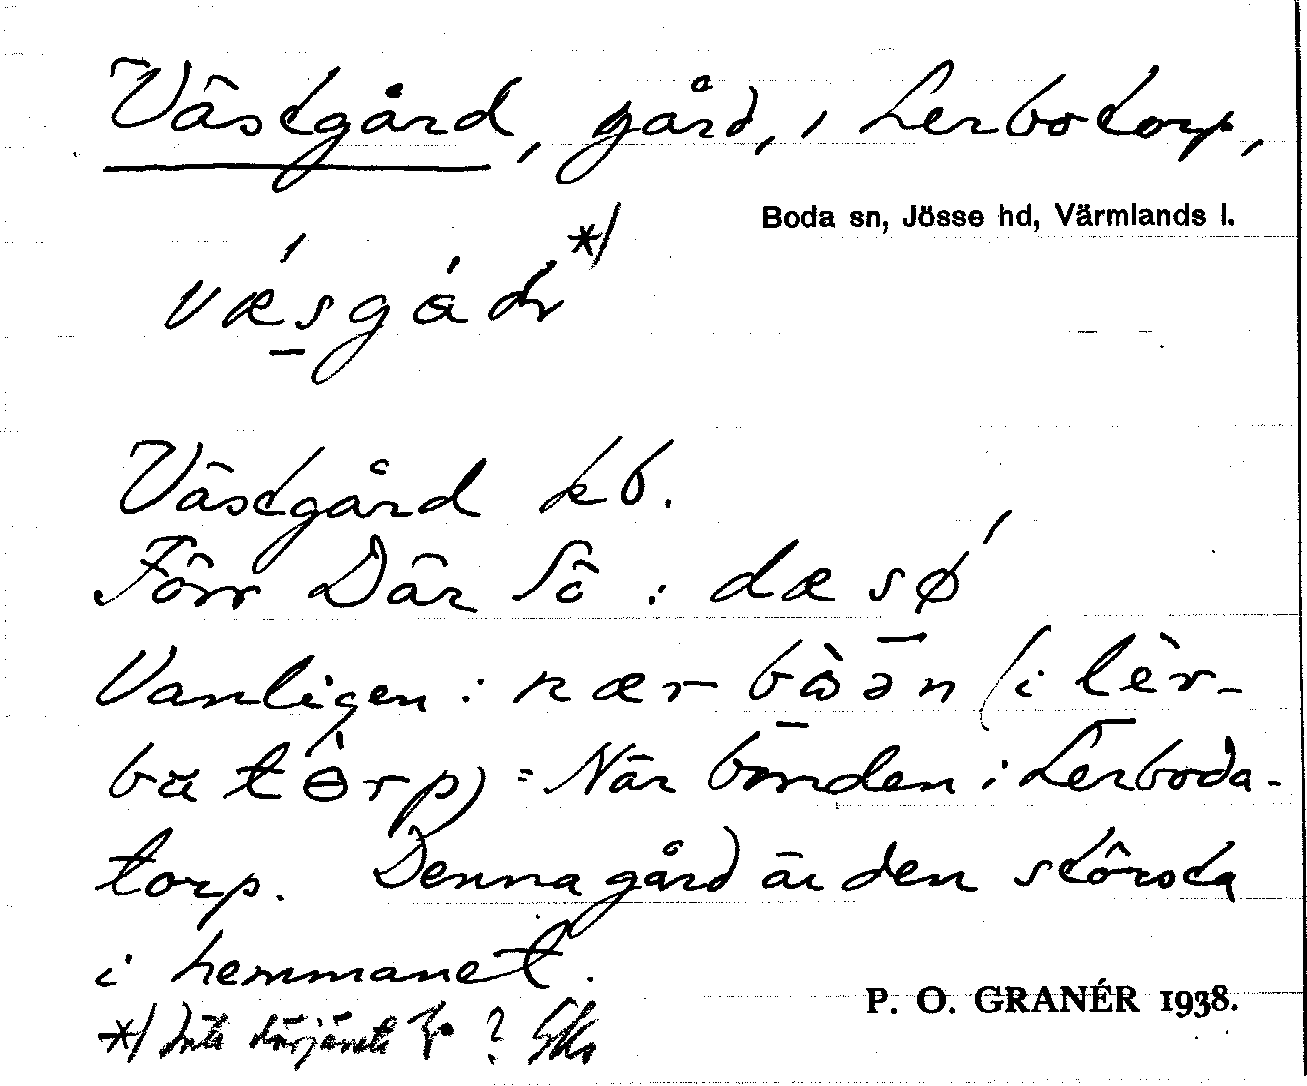 Västgård, gård, i Lerbotorp,
Boda sn, Jösse hd, Värmlands l.
væ´sgå´dr */
Västgård kb.
Förr Där Sö : dæ sø´
Vanligen : nær bå̀ən (i lèr-
ba tòrp) = När bonden i Lerboda-
torp. Denna gård är den största
i hemmanet.
P. O. GRANÉR 1938.
*/ Inte ?